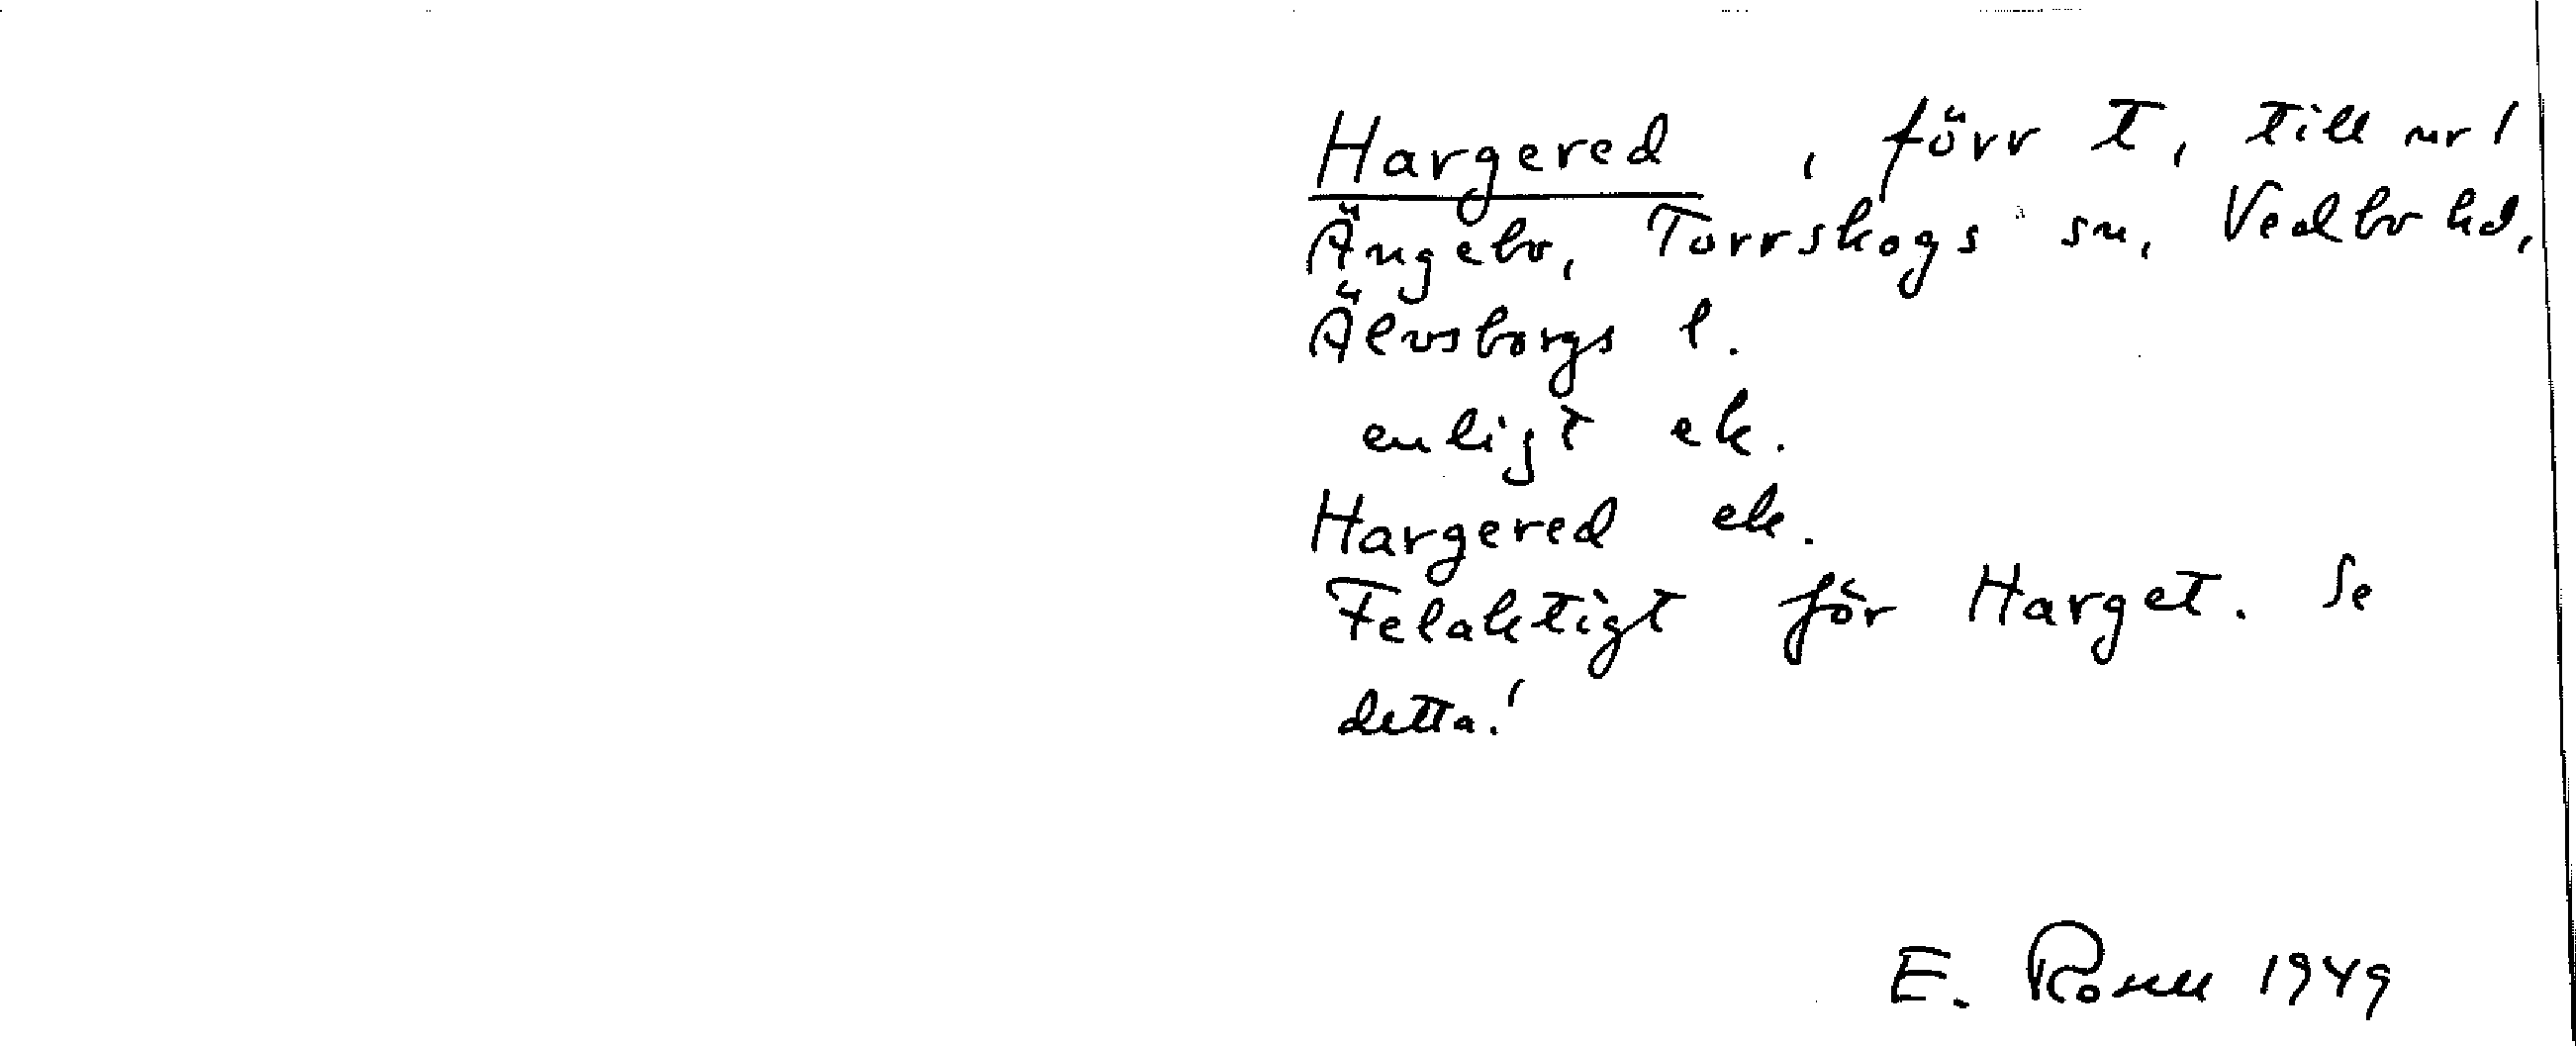 Hargered, förr t, till nr 1
Ängebo, Torrskogs sn, Vedbo hd,
Älvsborgs l.
enligt ek.
Hargered ek.
Felaktigt för Harget. Se
detta!
E. Rosell 1949